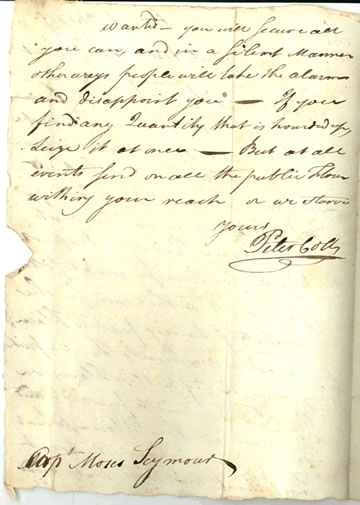 wanted — you will secure all
you can, and in a Silent Manner
otherways people will take the alarm
and disappoint you — If you
find any Quantity that is hoarded up
Seize it at once — But at all
events send on all the public Flour
within your reach or we starve
Yours
Peter Colt
Capt Moses Seymour